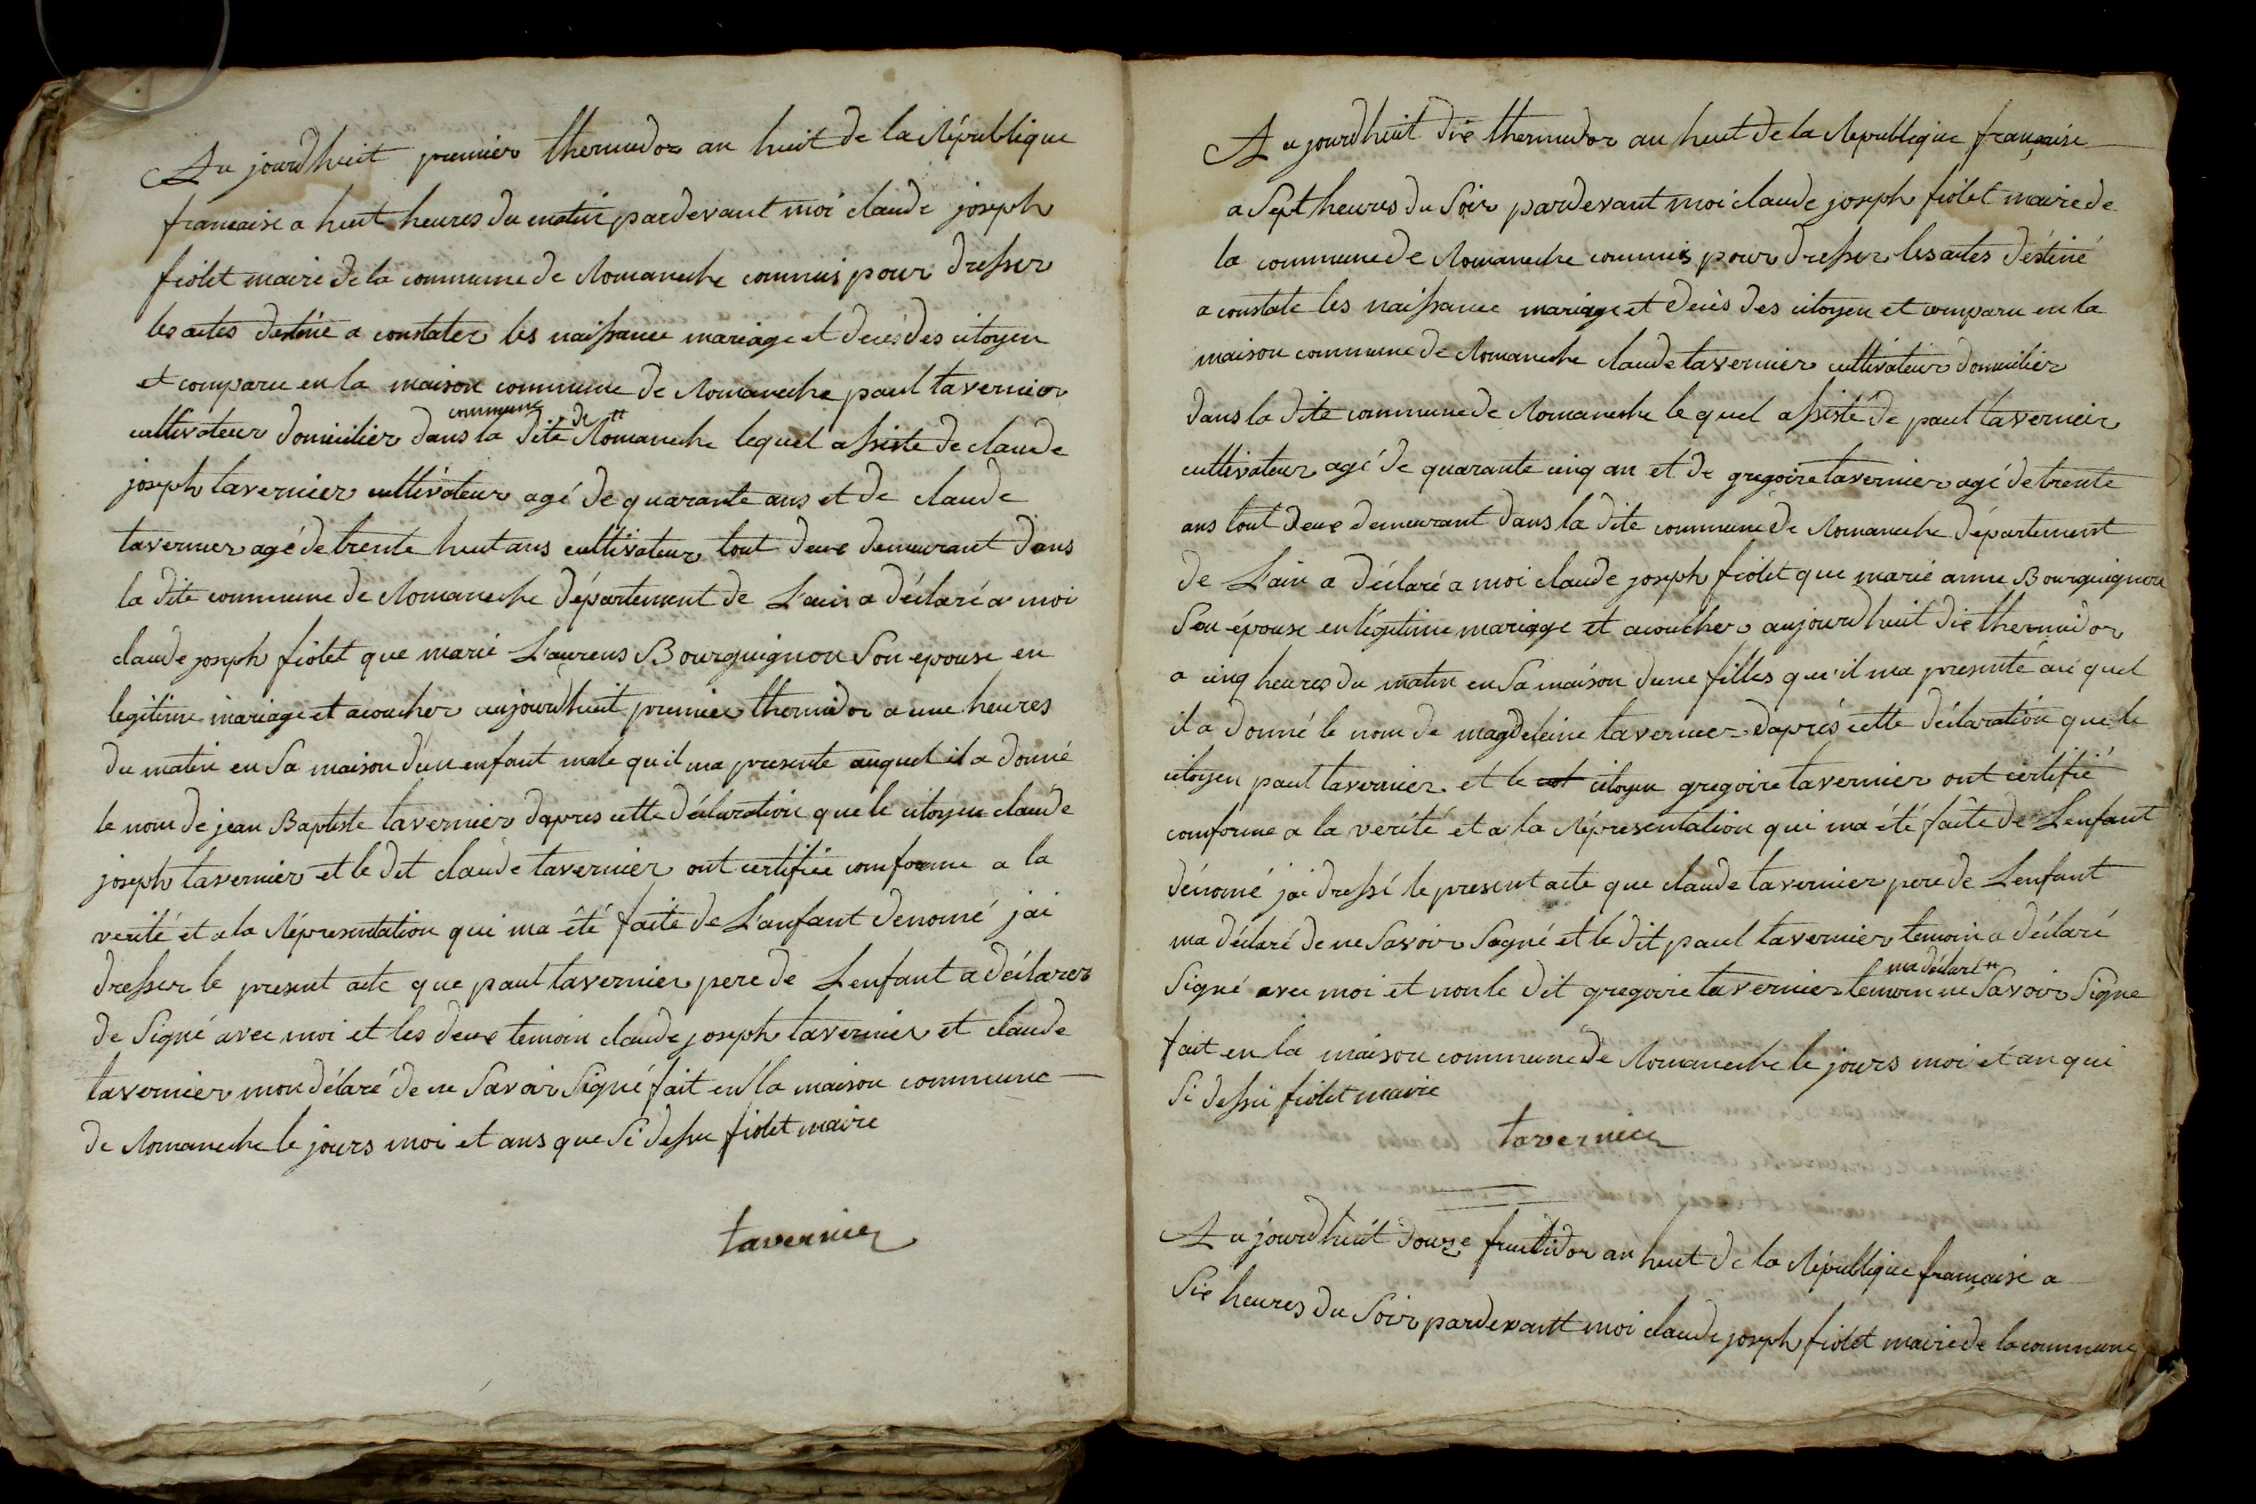 Au jourdhuit premier thermidor an huit de la République
francaise a huit heures du matin pardevant moi claude joseph
fiolet maire de la commune de Romaneche commis pour dresser
les actes destiné a constater les naissance mariage et decés des citoyen
et comparu en la maison commune de Romaneche paul tavernier
cultivateur domicilier dans la dite commune de Romaneche lequel assiste de claude
joseph tavernier cultivateur agé de quarante ans et de claude
tavernier agé de trente huit ans cultivateur tout deux demeurant dans
la dite commune de Romaneche département de L'ain a déclaré a moi
claude joseph fiolet que marie Laurens Bourguignon Son epouse en
legitime mariage et acoucher aujourdhuit premier thermidor a une heures
du matin en Sa maison d'un enfant male qu'il ma presente auquel il a donné
le nom de jean Baptiste tavernier d'apres cette déclaration que le citoyen claude
joseph tavernier et le dit claude tavernier ont certifiée comforme a la
verité et a la réprésentation qui ma été faite de L'anfant denomé jai
dresser le present acte que paul tavernier pere de L'enfant a déclarer
de Signé avec moi et les deux temoin claude joseph tavernier et claude
tavernier mon délaré de ne Savoir Signé fait en la maison commune
de Romaneche le jours moi et ans que Si dessu fiolet maire
tavernier
Au jourdhuit dix thermidor an huit de la République française
a Sept heures du Soir pardevant moi claude joseph fiolet maire de
la commune de Romaneche commis pour dresser les actes déstiné
a constate les naissance mariage et decès des citoyen et comparu en la
maison commune de Romaneche claude tavernier cultivateur domicilier
dans la dite commune de Romaneche le quel assisté de paul tavernier
cultivateur agé de quarante cinq an et de gregoire tavernier agé de trente
ans tout deux demeurant dans la dite commune de Romaneche département
de L'ain a déclaré a moi claude joseph fiolet que marie anne Bourguignon
Son épouse en légitime mariage et acoucher aujourdhuit dix thermidor
a cinq heures du matin en Sa maison d'une filles qu'il ma presenté au quel
il a donné le nom de magdeleine tavernier d'aprés cette déclaration que le
citoyen paul tavernier et le citoyen gregoire tavernier ont certifié
comforme a la verité et a la réprésentation qui ma été faite de L'enfant
dénomé jai dressé le present acte que claude tavernier pere de L'enfant
ma déclaré de ne Savoir Signé et le dit paul tavernier temoin a déclaré
Signé avec moi et non le dit gregoire tavernier temoin ma déclaré ne Savoir Signe
fait en la maison commune de Romaneche le jours moi et an qui
Si dessu fiolet maire
tavernier
Au jourdhuit douze fructidor an huit de la République française a
Six heures du Soir pardevant moi claude joseph fiolet maire de la commune